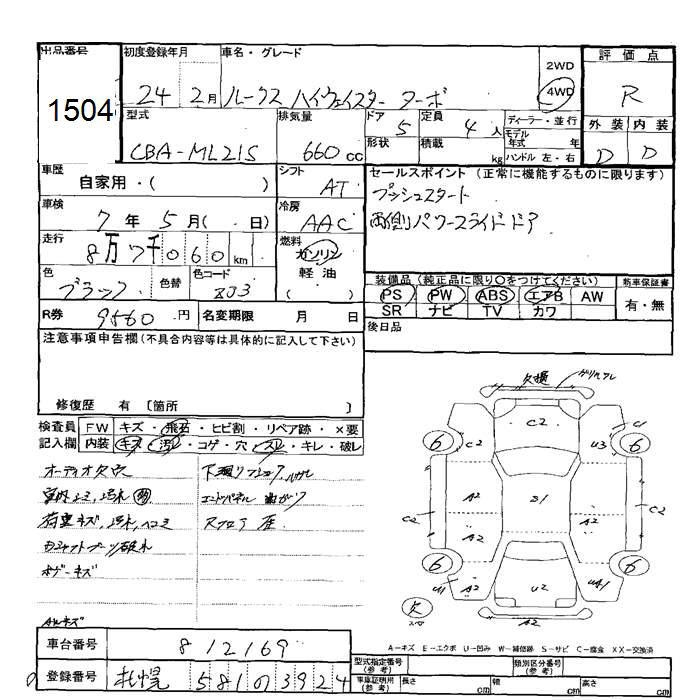 出品番号
1504
初度登録年月
24 2月
車名・グレード
ルークス ハイウェイスター ターボ
2WD
4WD
評価点
R
型式
CBA-ML21S
排気量
660 cc
ドア 5
形状
定員 4 人
積載 kg
ディーラー・並行
モデル年式 年
ハンドル 左・右
外装 内装
D D
車歴
自家用・( )
シフト
AT
セールスポイント (正常に機能するものに限ります)
プッシュスタート
両側パワースライドドア
車検
7年 5月( ・ 日)
冷房
AAC
走行
8万7千060km
燃料
ガソリン
軽油
( )
色
ブラック
色替
色コード
ZJ3
装備品(純正品に限り○をつけてください)
PS PW ABS エアB AW
SR ナビ TV カワ
新車保証書
有・無
R券 9560円
名変期限 月 日
後日品
注意事項申告欄(不具合内容等は具体的に記入して下さい)
修復歴 有 〔箇所 〕
検査員記入欄
FW キズ・飛石・ヒビ割・リペア跡・×要
内装 キズ・汚・コゲ・穴・スレ・キレ・破レ
オーディオ欠
下廻り
荷室キズ、汚れ、ヘコミ
ボデーキズ
欠
C2
6
6
C2
U3
A2
A2
B1
A2
C2
A2
6
6
U1
A2
U2
UA1
A2
A-キズ E-エクボ U-凹み W-補修跡 S-サビ C-腐食 XX-交換済
車台番号 812169
登録番号 札幌 581 3924
型式指定番号(参考)
類別区分番号(参考)
車庫証明用(参考) 長さ cm 幅 cm 高さ cm